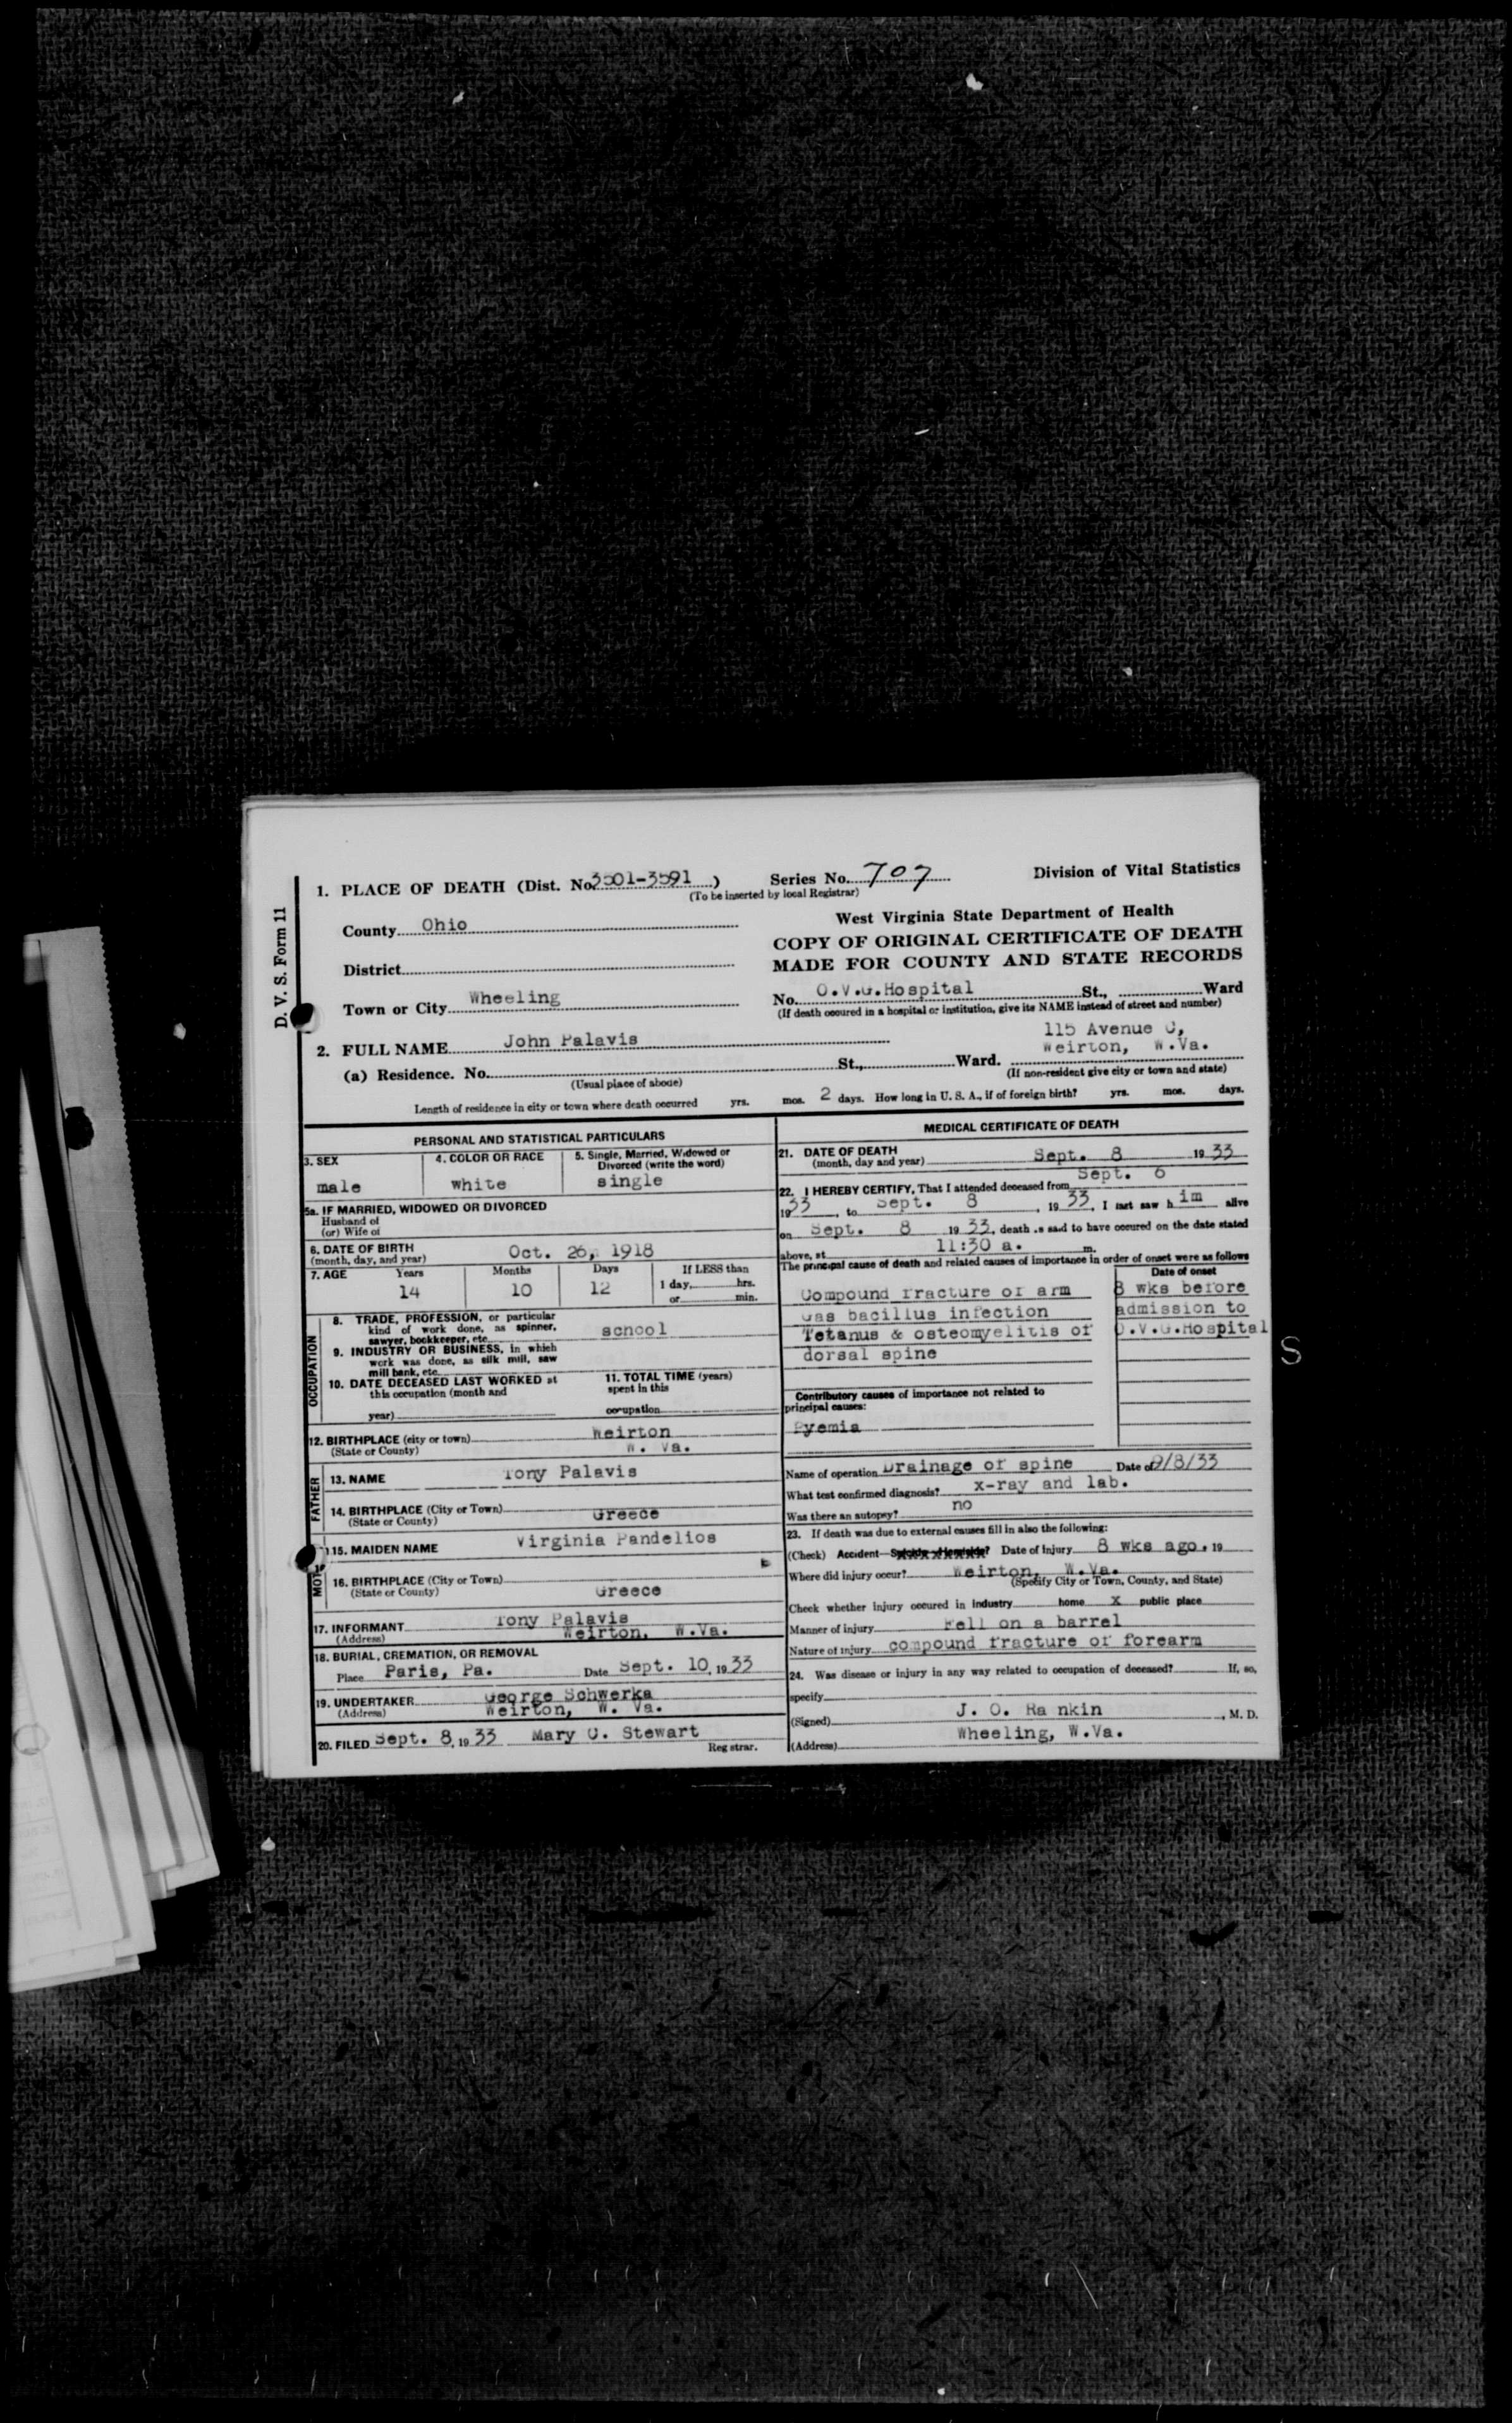 D. V. S. Form 11
1. PLACE OF DEATH (Dist. No. 3501-3591) Series No. 707 Division of Vital Statistics
(To be inserted by local Registrar)
County Ohio
West Virginia State Department of Health
COPY OF ORIGINAL CERTIFICATE OF DEATH
MADE FOR COUNTY AND STATE RECORDS
District
Town or City Wheeling
No. O.V.G.Hospital St., Ward
(If death occured in a hospital or institution, give its NAME instead of street and number)
2. FULL NAME John Palavis
115 Avenue C,
Weirton, W.Va.
(a) Residence. No. St., Ward.
(Usual place of abode) (If non-resident give city or town and state)
Length of residence in city or town where death occurred yrs. mos. 2 days. How long in U. S. A., if of foreign birth? yrs. mos. days.
PERSONAL AND STATISTICAL PARTICULARS
3. SEX 4. COLOR OR RACE 5. Single, Married, Widowed or
Divorced (write the word)
male white single
5a. IF MARRIED, WIDOWED OR DIVORCED
Husband of
(or) Wife of
6. DATE OF BIRTH
(month, day, and year) Oct. 26, 1918
7. AGE Years Months Days If LESS than
14 10 12 1 day, hrs.
or min.
OCCUPATION
8. TRADE, PROFESSION, or particular
kind of work done, as spinner,
sawyer, bookkeeper, etc. school
9. INDUSTRY OR BUSINESS, in which
work was done, as silk mill, saw
mill bank, etc.
10. DATE DECEASED LAST WORKED at
this occupation (month and
year)
11. TOTAL TIME (years)
spent in this
occupation
12. BIRTHPLACE (city or town) Weirton
(State or County) W. Va.
FATHER
13. NAME Tony Palavis
14. BIRTHPLACE (City or Town)
(State or County) Greece
15. MAIDEN NAME Virginia Pandelios
16. BIRTHPLACE (City or Town)
(State or County) Greece
17. INFORMANT Tony Palavis
(Address) Weirton, W.Va.
18. BURIAL, CREMATION, OR REMOVAL
Place Paris, Pa. Date Sept. 10, 1933
19. UNDERTAKER George Schwerka
(Address) Weirton, W. Va.
20. FILED Sept. 8, 1933 Mary C. Stewart
Registrar.
MEDICAL CERTIFICATE OF DEATH
21. DATE OF DEATH
(month, day and year) Sept. 8 1933
22. I HEREBY CERTIFY, That I attended deceased from Sept. 6
1933, to Sept. 8, 1933, I last saw him alive
on Sept. 8 1933, death is said to have occured on the date stated
above, at 11:30 a. m.
The principal cause of death and related causes of importance in order of onset were as follows
Date of onset
Compound fracture of arm 8 wks before
Gas bacillus infection admission to
Tetanus & osteomyelitis of O.V.G.Hospital
dorsal spine
S
Contributory causes of importance not related to
principal causes:
Pyemia
Name of operation Drainage of spine Date of 9/8/33
What test confirmed diagnosis? x-ray and lab.
Was there an autopsy? no
23. If death was due to external causes fill in also the following:
(Check) Accident Suicide Homicide? Date of Injury 8 wks ago, 19
Where did injury occur? Weirton, W.Va.
(Specify City or Town, County, and State)
Check whether injury occured in industry home X public place
Manner of injury Fell on a barrel
Nature of injury compound fracture of forearm
24. Was disease or injury in any way related to occupation of deceased? If, so,
specify
(Signed) J. O. Ra nkin, M. D.
(Address) Wheeling, W.Va.